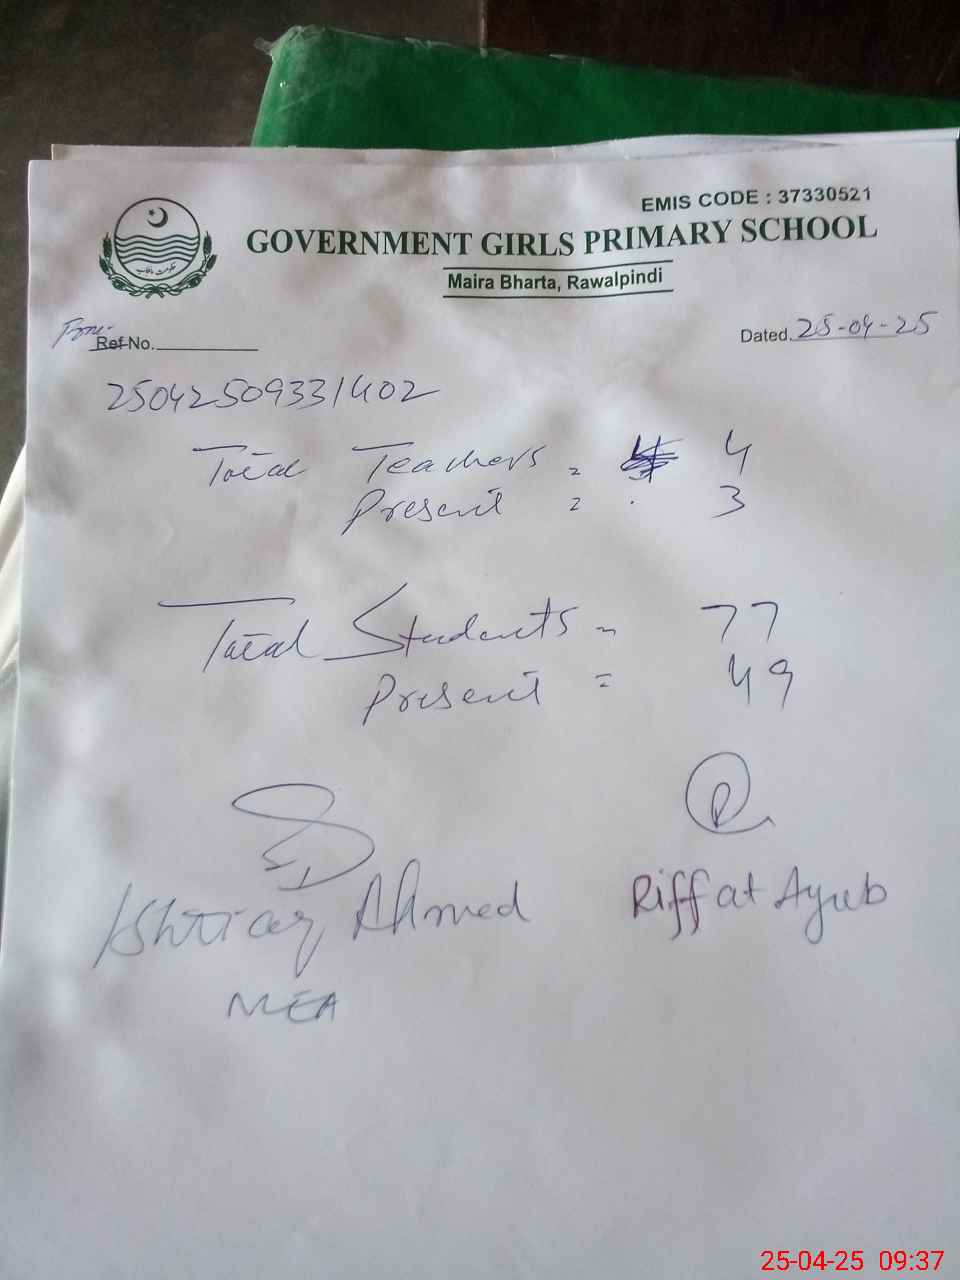 EMIS CODE : 37330521
GOVERNMENT GIRLS PRIMARY SCHOOL
Maira Bharta, Rawalpindi
حکومت پنجاب
Ref No.
Dated. 25-04-25
25042509331402
Total Teachers = 4
Present = 3
Total Students = 77
Present = 49
Ishtiaq Ahmed
Riffat Ayub
MEA
25-04-25 09:37